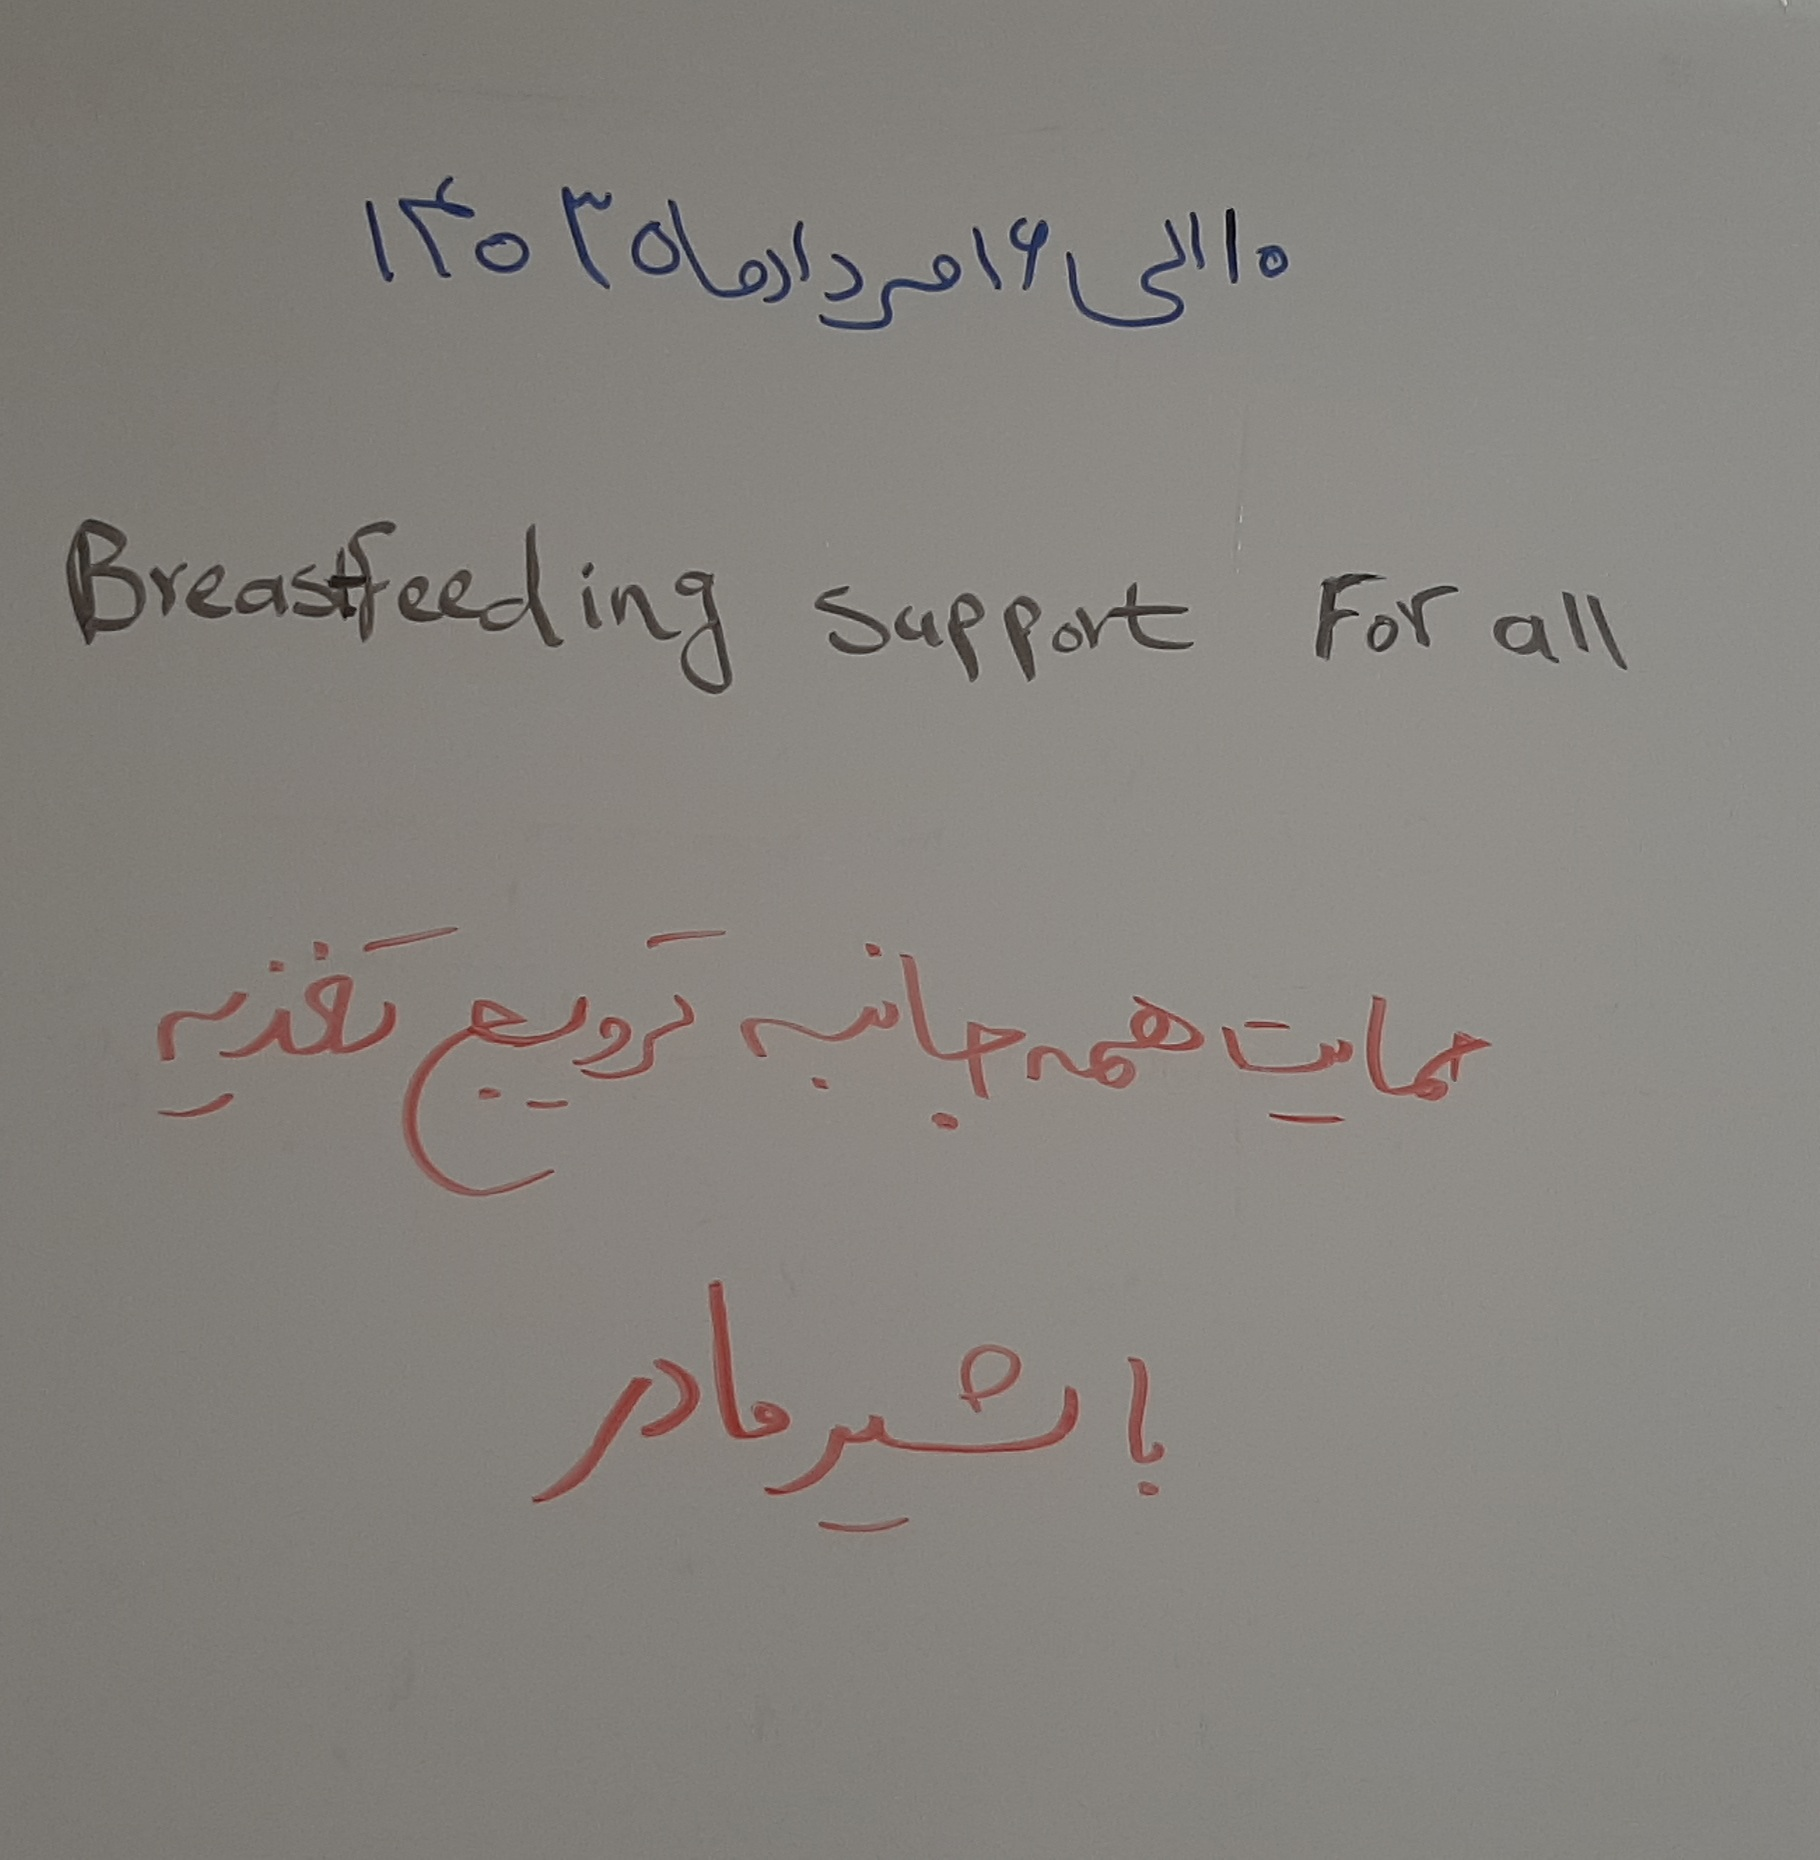 ۱۰ الی ۱۶ مرداد ماه ۱۴۰۳
Breastfeeding support For all
حمایت همه جانبه ترویج تغذیه
با شیر مادر